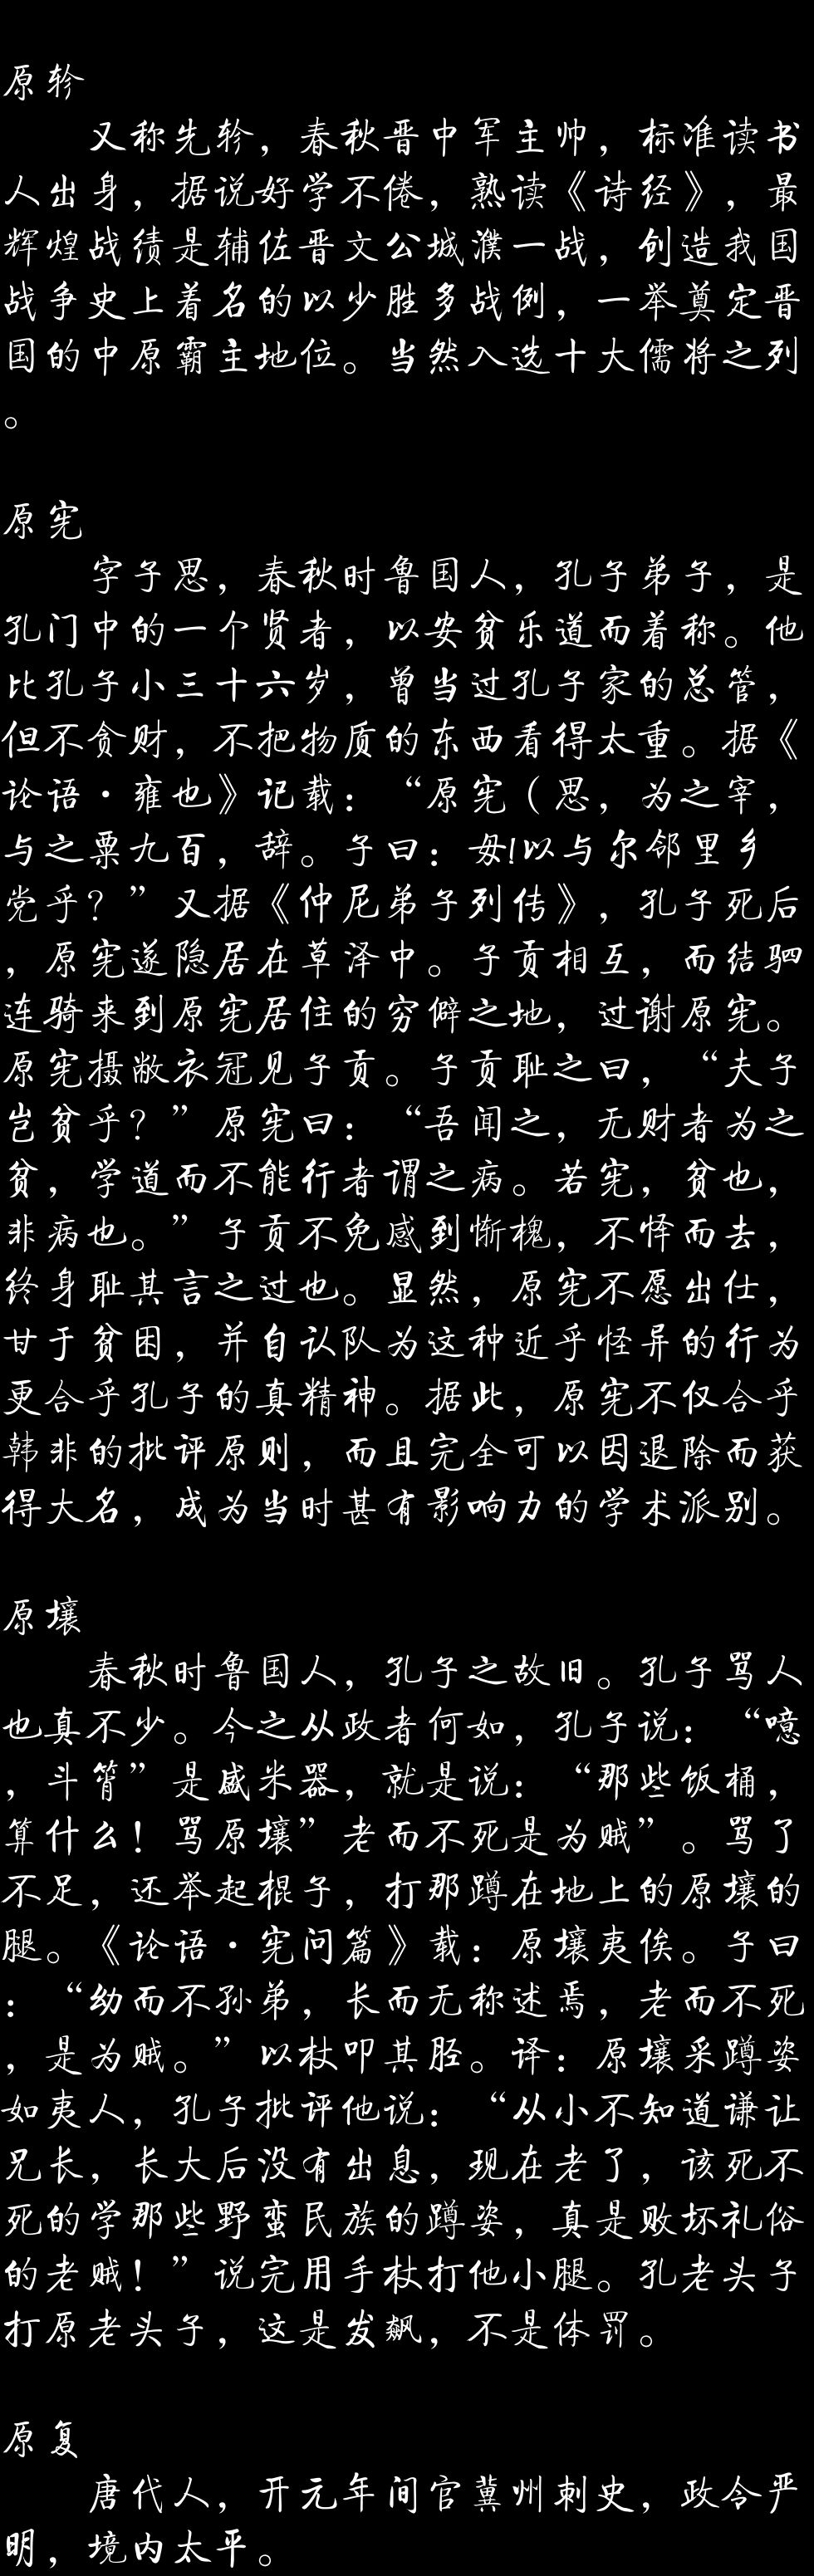 原轸
又称先轸，春秋晋中军主帅，标准读书
人出身，据说好学不倦，熟读《诗经》，最
辉煌战绩是辅佐晋文公城濮一战，创造我国
战争史上着名的以少胜多战例，一举奠定晋
国的中原霸主地位。当然入选十大儒将之列
。
原宪
字子思，春秋时鲁国人，孔子弟子，是
孔门中的一个贤者，以安贫乐道而着称。他
比孔子小三十六岁，曾当过孔子家的总管，
但不贪财，不把物质的东西看得太重。据《
论语·雍也》记载：“原宪（思，为之宰，
与之粟九百，辞。子曰：毋!以与尔邻里乡
党乎？”又据《仲尼弟子列传》，孔子死后
，原宪遂隐居在草泽中。子贡相互，而结驷
连骑来到原宪居住的穷僻之地，过谢原宪。
原宪摄敝衣冠见子贡。子贡耻之曰，“夫子
岂贫乎？”原宪曰：“吾闻之，无财者为之
贫，学道而不能行者谓之病。若宪，贫也，
非病也。”子贡不免感到惭槐，不怿而去，
终身耻其言之过也。显然，原宪不愿出仕，
甘于贫困，并自认队为这种近乎怪异的行为
更合乎孔子的真精神。据此，原宪不仅合乎
韩非的批评原则，而且完全可以因退除而获
得大名，成为当时甚有影响力的学术派别。
原壤
春秋时鲁国人，孔子之故旧。孔子骂人
也真不少。今之从政者何如，孔子说：“噫
，斗筲”是盛米器，就是说：“那些饭桶，
算什么！骂原壤”老而不死是为贼”。骂了
不足，还举起棍子，打那蹲在地上的原壤的
腿。《论语·宪问篇》载：原壤夷俟。子曰
：“幼而不孙弟，长而无称述焉，老而不死
，是为贼。”以杖叩其胫。译：原壤采蹲姿
如夷人，孔子批评他说：“从小不知道谦让
兄长，长大后没有出息，现在老了，该死不
死的学那些野蛮民族的蹲姿，真是败坏礼俗
的老贼！”说完用手杖打他小腿。孔老头子
打原老头子，这是发飙，不是体罚。
原复
唐代人，开元年间官冀州刺史，政令严
明，境内太平。